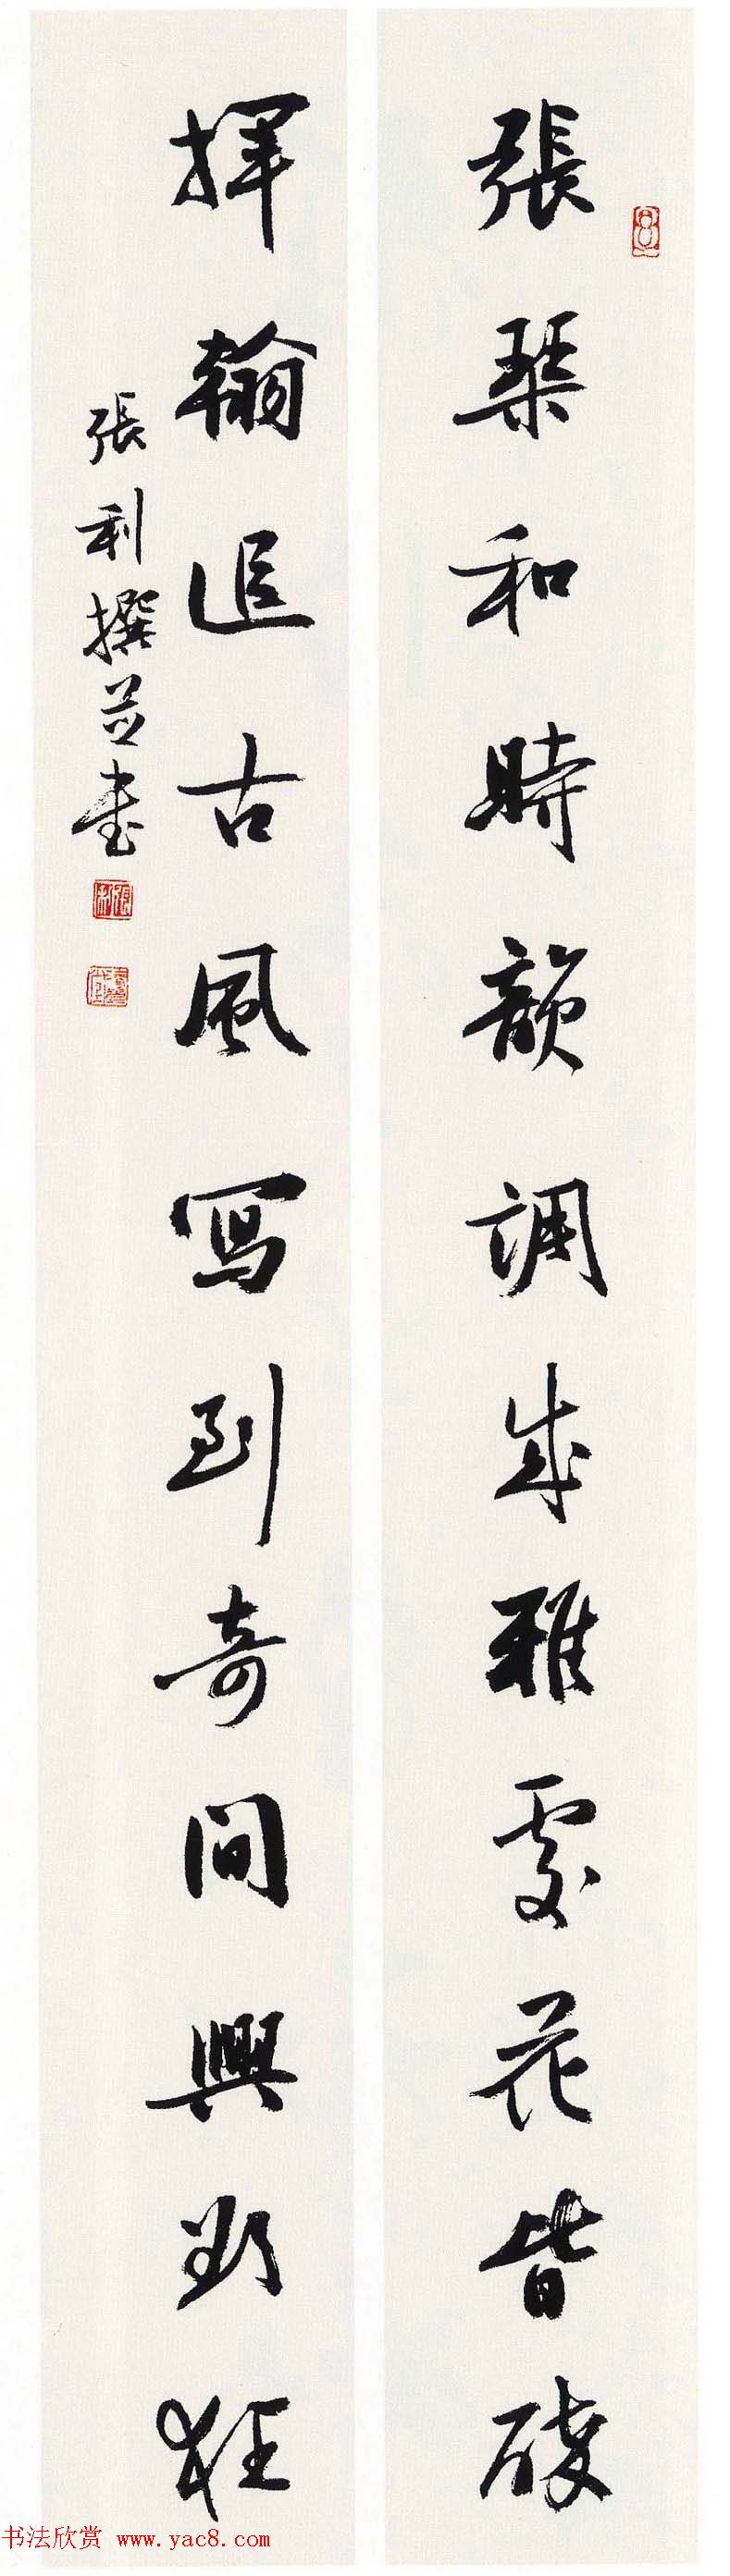 張琴和時韻調成雅處花皆
揮翰追古風寫到奇間興狂
張利撰並書
书法欣赏 www.yac8.com